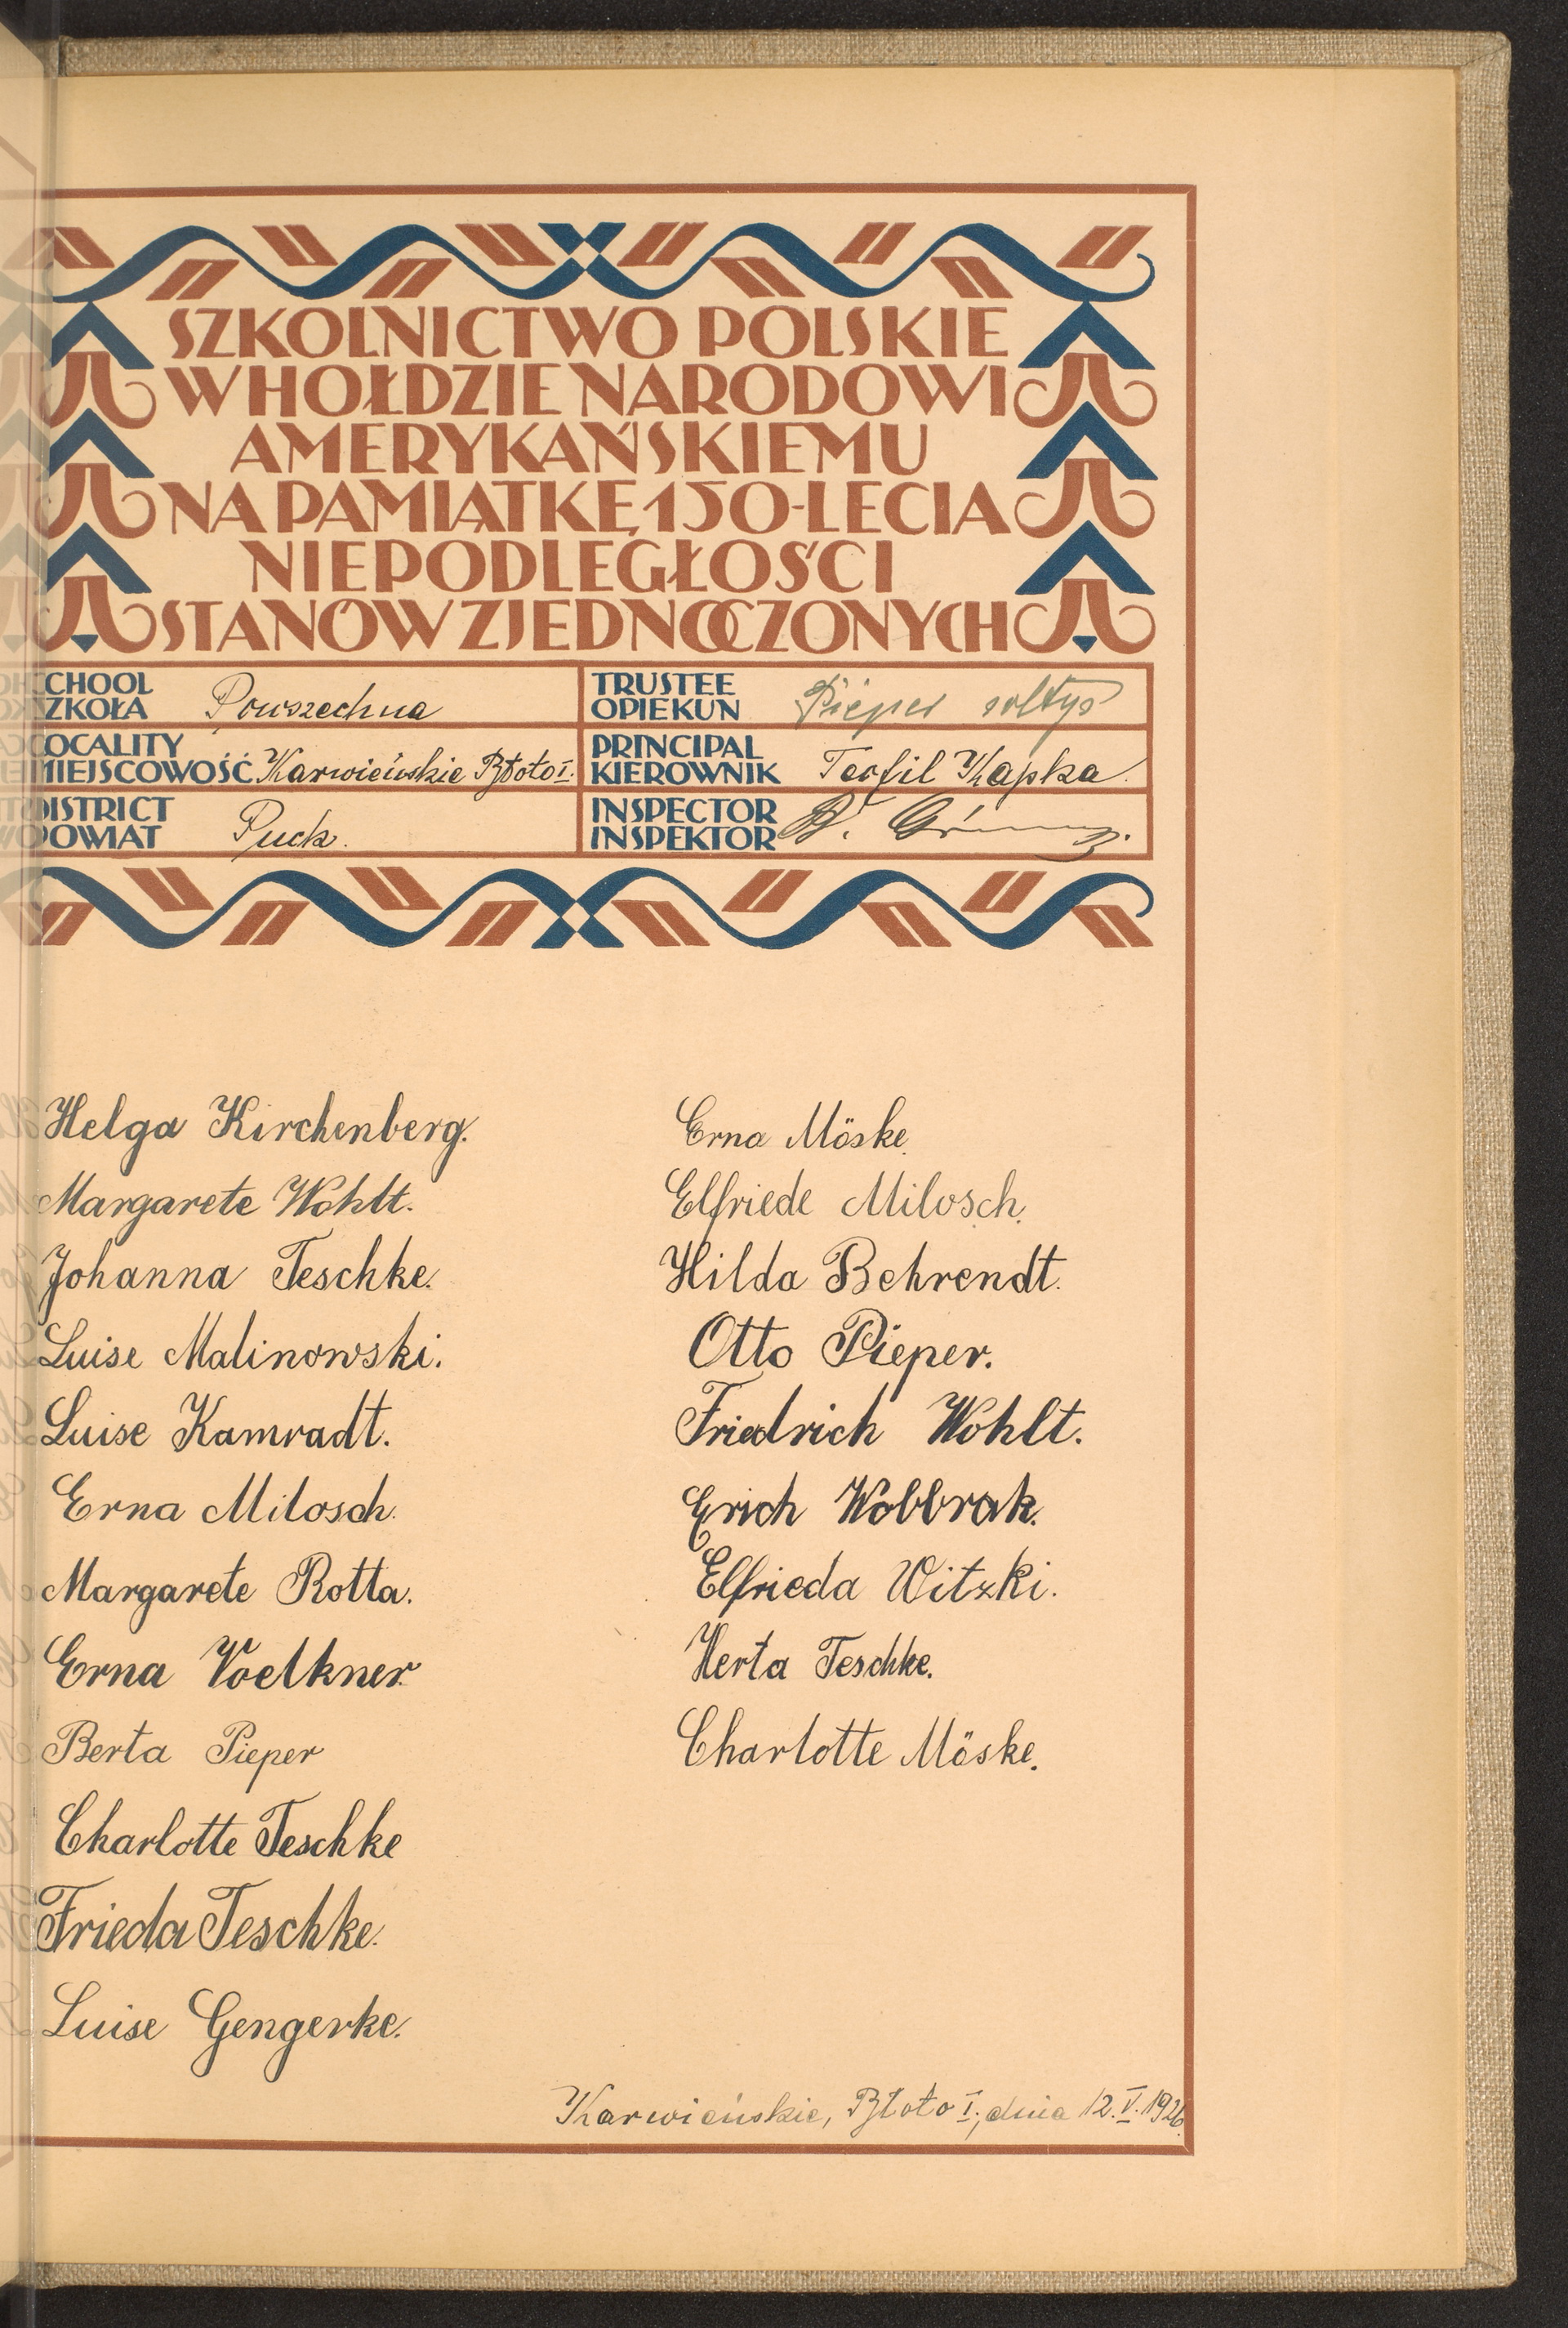 SZKOLNICTWO POLSKIE
W HOŁDZIE NARODOWI
AMERYKAŃSKIEMU
NA PAMIĄTKĘ 150-LECIA
NIEPODLEGŁOŚCI
STANÓW ZJEDNOCZONYCH
CHOOL
ZKOŁA Powszechna
TRUSTEE
OPIEKUN Pieper sołtys
OCALITY
MIEJSCOWOŚĆ Karwieńskie Błoto I.
PRINCIPAL
KIEROWNIK Teofil Kapka.
DISTRICT
POWIAT Puck.
INSPECTOR
INSPEKTOR
Helga Kirchenberg.
Margarete Wohlt.
Johanna Teschke.
Luise Malinowski.
Luise Kamradt.
Erna Milosch.
Margarete Rotta.
Erna Voelkner.
Berta Pieper
Charlotte Teschke
Frieda Teschke.
Luise Gengerke.
Erna Möske.
Elfriede Milosch.
Hilda Behrendt.
Otto Pieper.
Friedrich Wohlt.
Erich Wobbrak.
Elfrieda Witzki.
Herta Teschke.
Charlotte Möske.
Karwieńskie, Błoto I., dnia 12.V.1926.